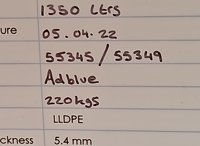 1350 Ltrs
ure 05.04.22
55345 / 55349
Adblue
220kgs
LLDPE
ckness 5.4 mm